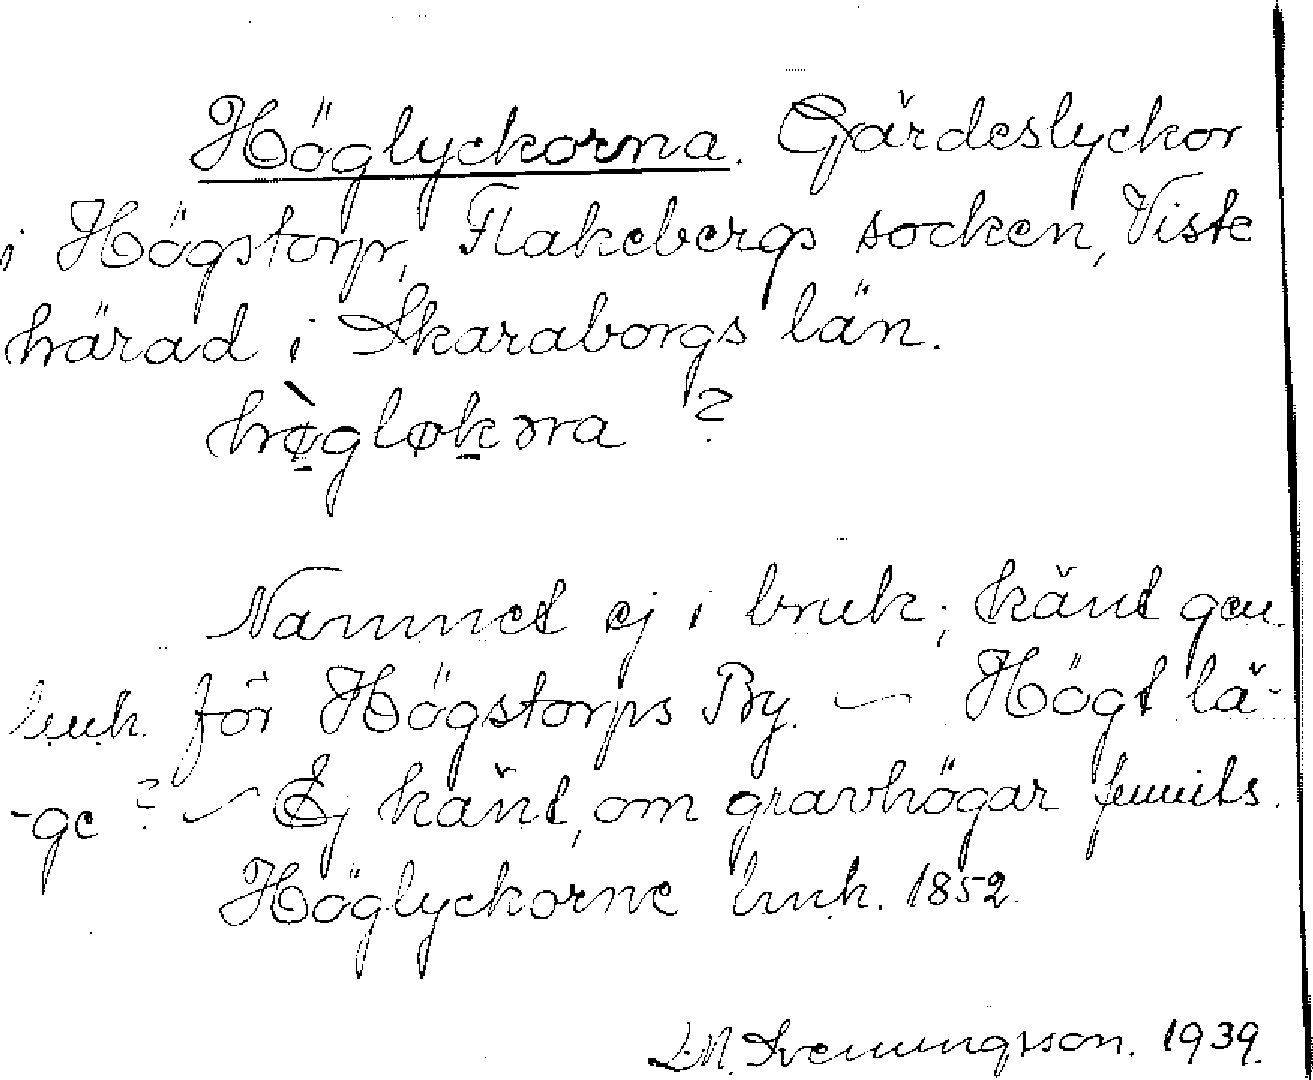 Höglyckorna. Gärdeslyckor
i Högstorp, Flakebergs socken, Viste
härad i Skaraborgs län.
hø̀gløkɔrna ?
Namnet ej i bruk; känt gen.
lmk. för Högstorps By. — Högt lä-
-ge ? — Ej känt, om gravhögar funnits.
Höglyckorne lmk. 1852.
Sveningsson. 1939.